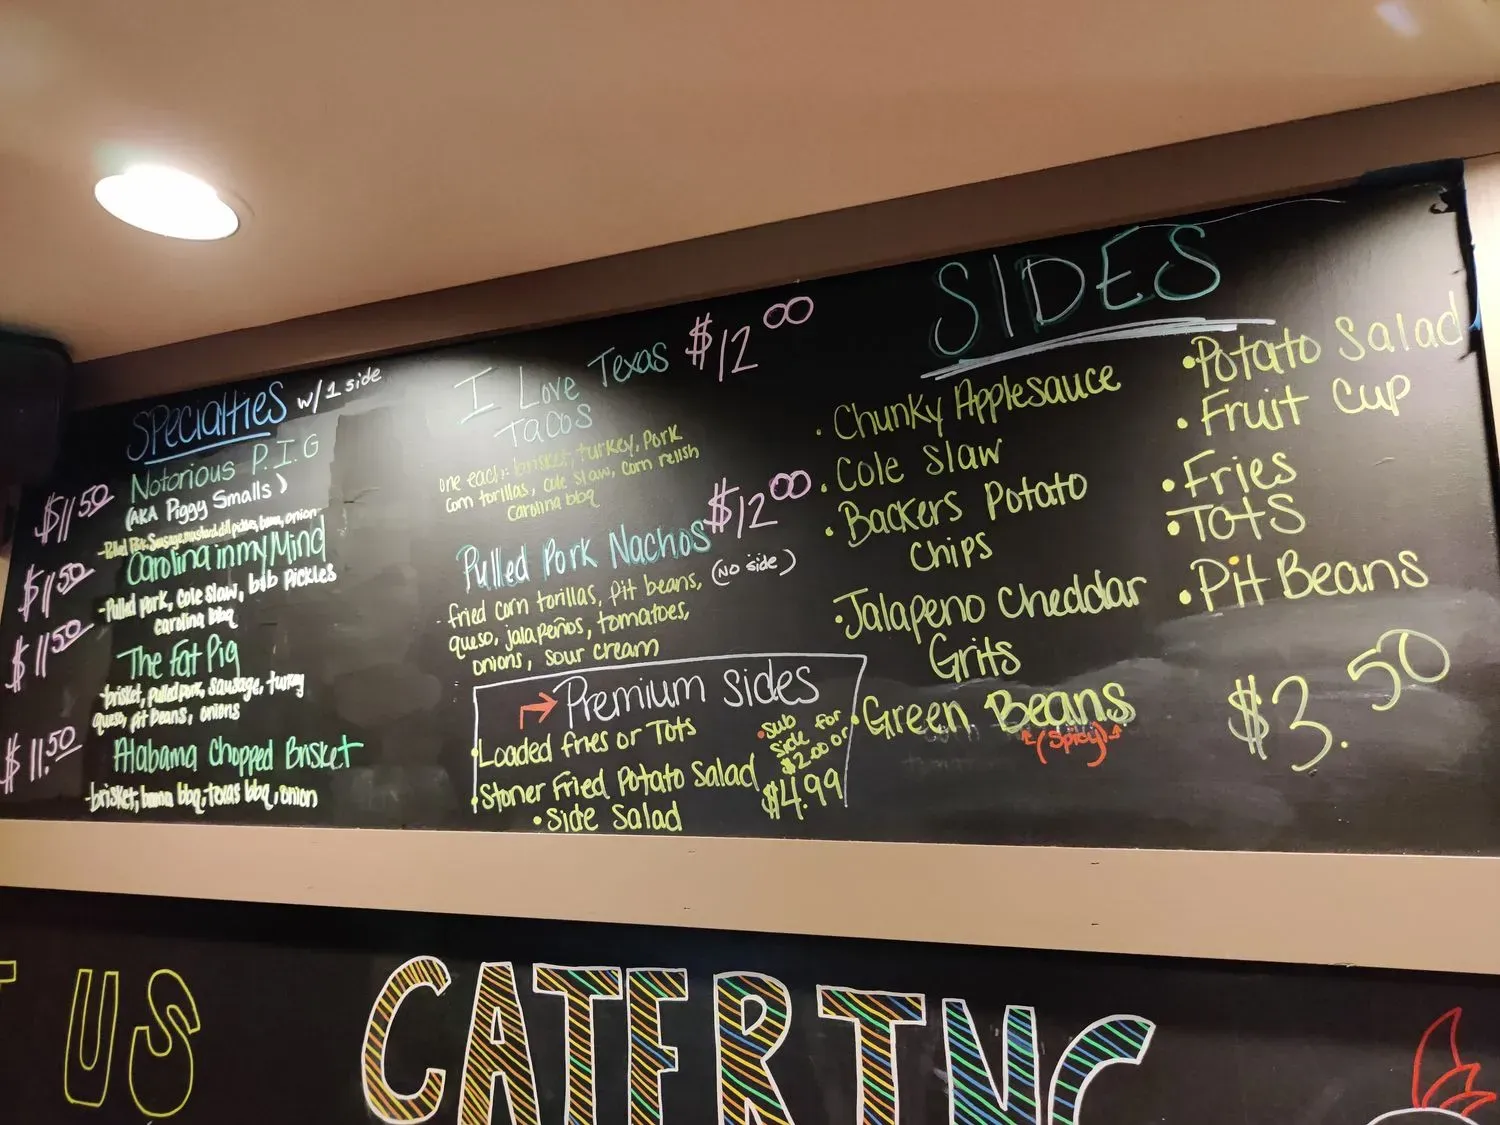 SPecialties w/1 side
Notorious P.I.G
(AKA Piggy Smalls)
$11.50
-Pulled Pork, Sausage, mustard, dill pickles, bama, onion
Carolina in my Mind
$11.50
-Pulled pork, cole slaw, b&b Pickles
carolina bbq
$11.50
The Fat Pig
-brisket, pulled pork, sausage, turkey
queso, pit beans, onions
$11.50
Alabama Chopped Brisket
-brisket, bama bbq, texas bbq, onion
I Love Texas $12.00
Tacos
one each: brisket, turkey, Pork
corn torillas, cole slaw, corn relish
carolina bbq
Pulled Pork Nachos $12.00
(No side)
- fried corn torillas, pit beans,
queso, jalapeños, tomatoes,
onions, sour cream
Premium Sides
•Loaded fries or Tots
•Stoner Fried Potato Salad
•Side Salad
•Sub
side for
$2.00 or
$4.99
SIDES
•Chunky Applesauce
•Cole Slaw
•Backers Potato
Chips
•Jalapeno Cheddar
Grits
•Green Beans
(Spicy)
•Potato Salad
•Fruit Cup
•Fries
•Tots
•Pit Beans
$3.50
US
CATERING